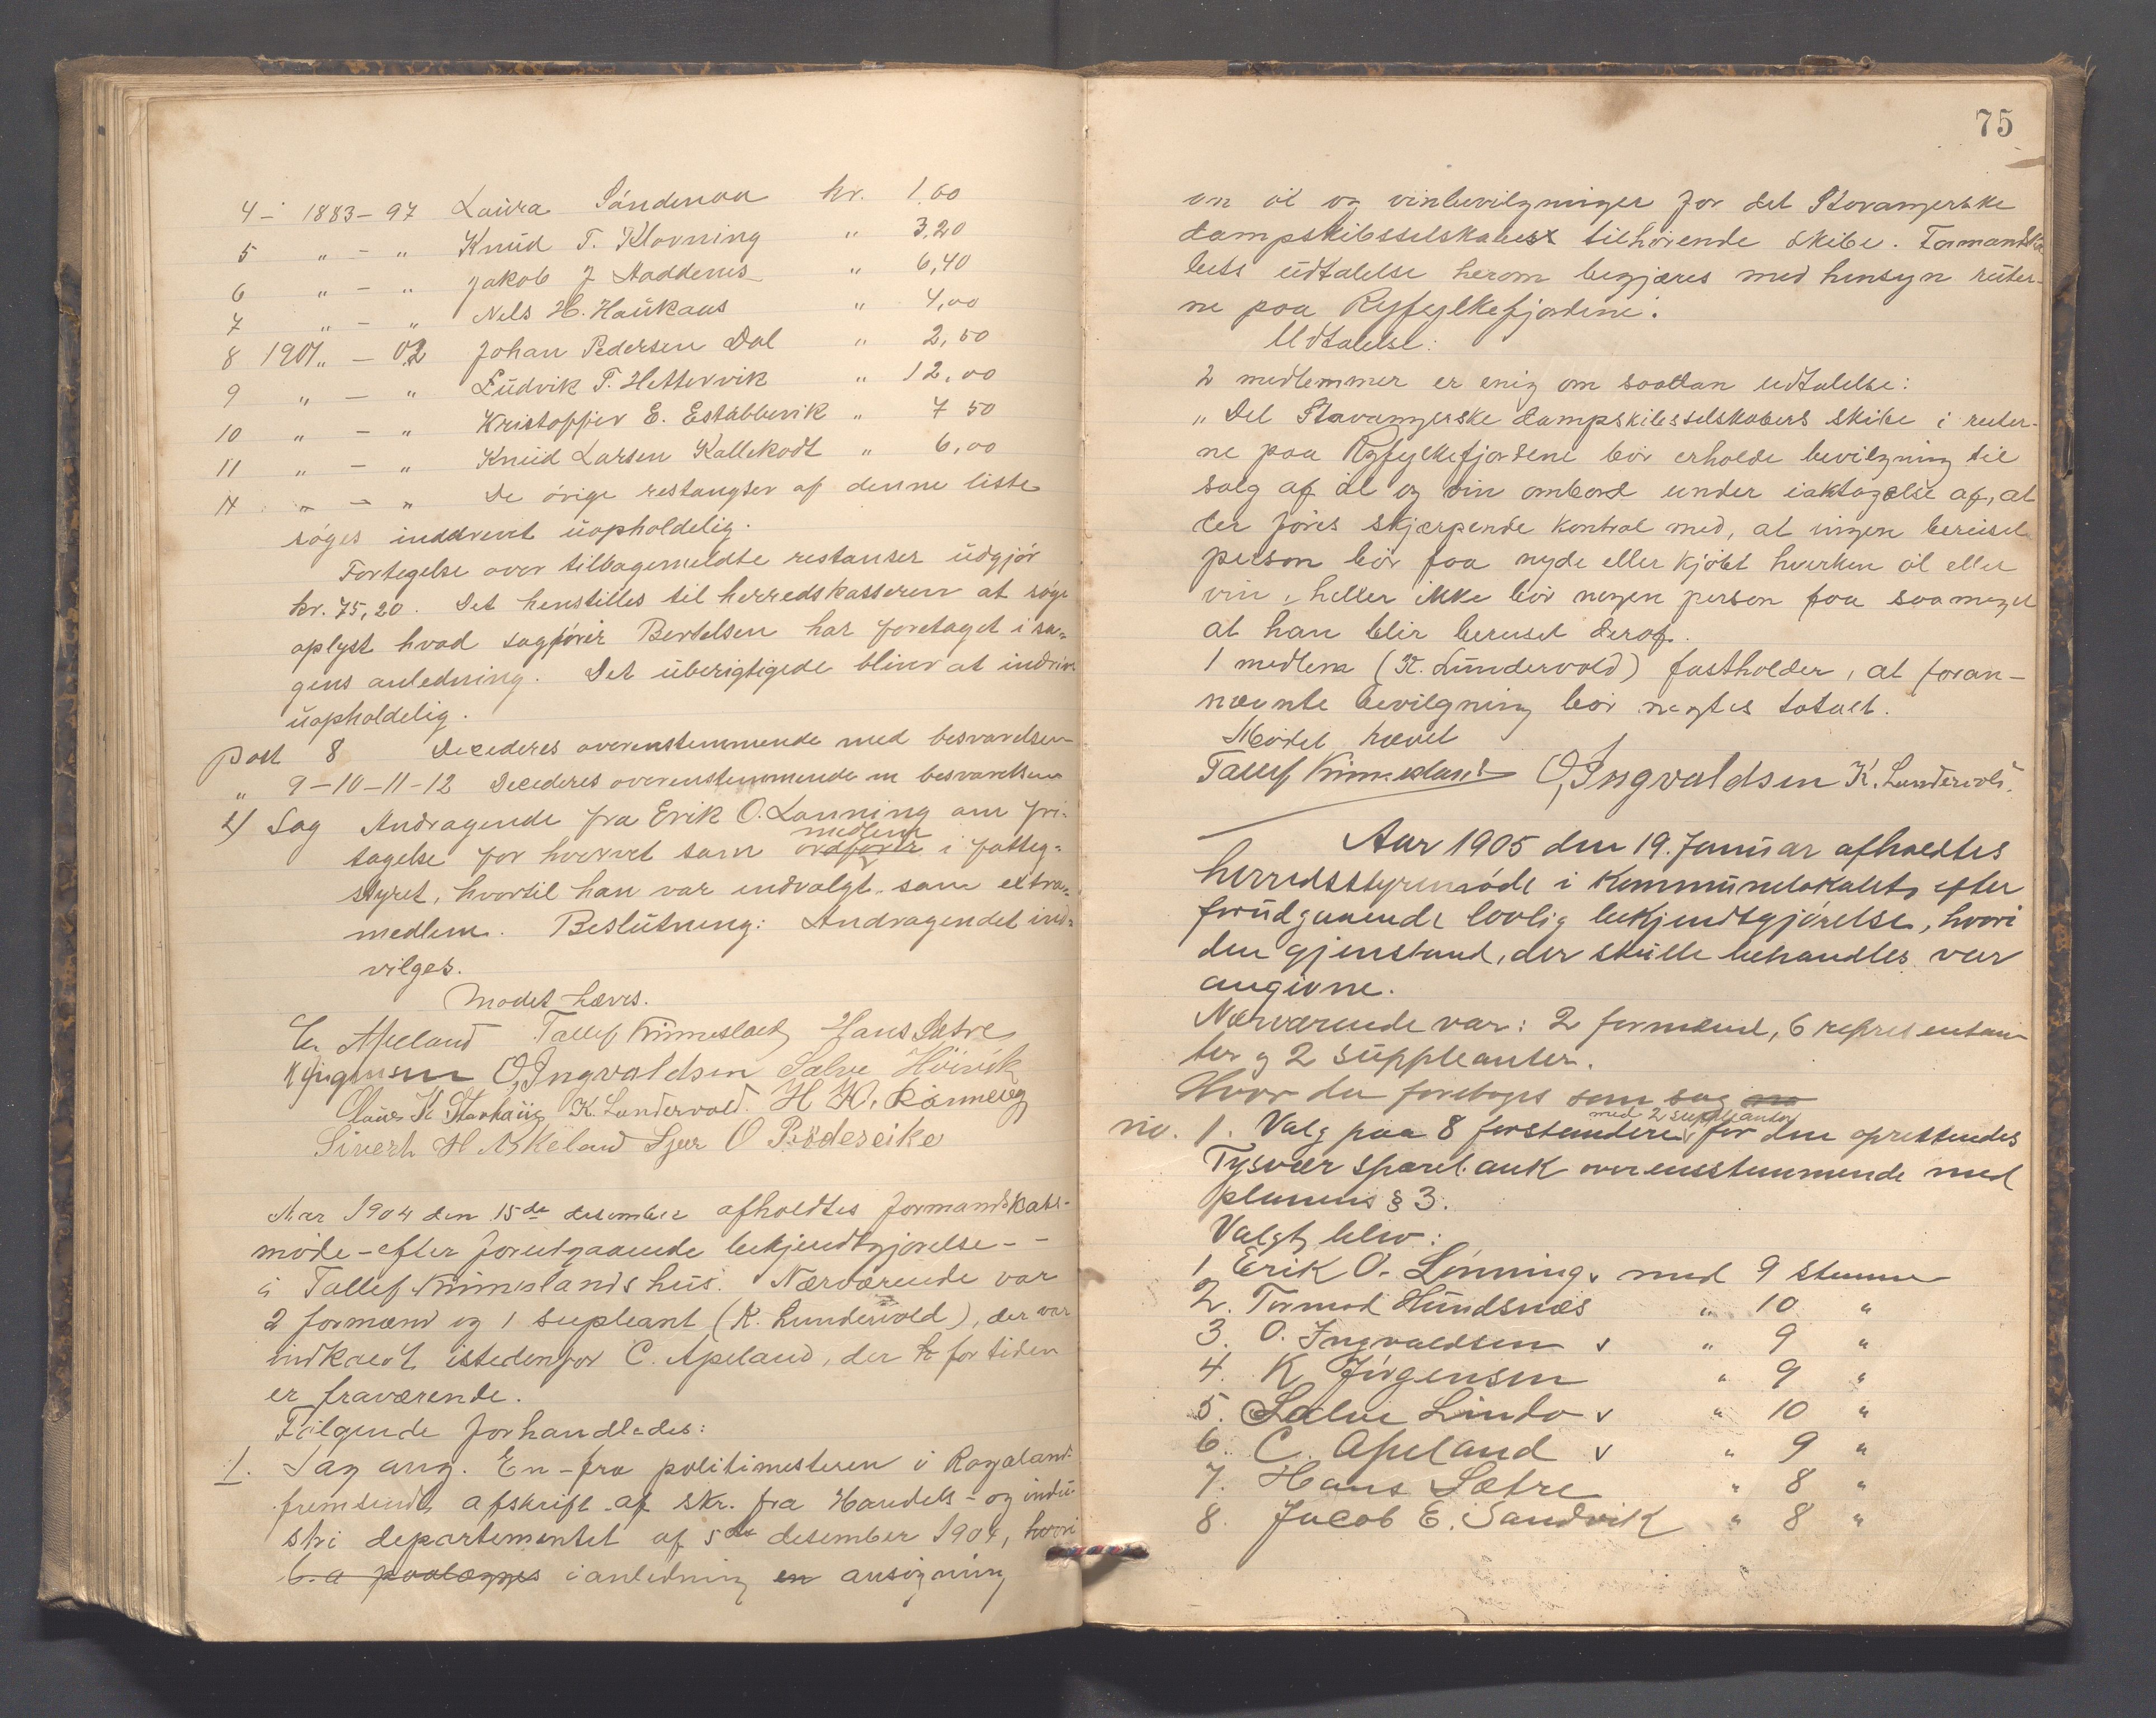 4 – 1883 – 97 Laura Sandenaa kr. 1.00
5 " – " Knud T. Klovning " 3,20
6 " – " Jakob J " 6,40
7 " – " Nels H. Haukaas " 4,00
8 1901 " – 02 Johan Pedersen Dal " 2,50
9 " – " Ludvik T. Hettervik " 12,00
10 " – " Kristoffer E. Estabbervik " 7 50
11 " – " Knud Larsen Kallekodt " 6,00
" – " De øvrige restangser af denne liste
søges inddrevet uopholdelig.
Fortegelse over tilbagemeldte restanser udgjør
kr. 75,20. Det henstilles til herredskasseren at søge
oplyst hvad sagfører Bertelsen har foretaget i sa-
gens anledning. Det uberigtigede bliver at indriv.
uopholdelig.
Post 8 Decederes overenstemmende med besvarelsen
" 9–10–11–12 Decederes overenstemmende m besvarelsen
2) Sag Andragende fra Erik O. Lønning om fri-
medlem
tagelse for hvervet som ordfører i fatteg-
styret, hvortil han var indvalgt som extra-
medlem. Beslutning: Andragendet ind-
vilges.
Mødet hæves.
C. Apeland Tallef Krimesland Hans Sætre
K Jørgensen O, Ingvaldsen Salve Høivik
Claus K. Storhaug K. Lundervold. H K. Rønnevig
Sivert H Askeland Sjur O Rødeseike
Aar 1904 den 15de desember afholdtes formandskabs-
møde – efter forutgaaende bekjendtgjørelse – –
i Tallef Krimeslands hus. Nærværende var
2 formænd og 1 supleant (K. Lundervold), der var
indkaldt istedenfor C. Apeland, der for tiden
er fraværende.
Følgende forhandledes:
1. Sag ang. En – fra politimesteren i Rogaland
fremsendt afskrift af skr. fra Handels – og indu-
stri departementet af 5te desember 1904, hvori
b. a paalægges i anledning en ansøgning
75
om øl og vinbevilgninger for det Stavangerske
dampskibsselskabes tilhørende skibe. Formandska-
bets udtalelse herom begjæres med hensyn ruter-
ne paa Ryfylkefjordene.
Udtalelse:
2 medlemmer er enig om saadan udtalelse:
"Det Stavangerske dampskibsselskabers skibe i ruter-
ne paa Ryfylkefjordene bør erholde bevilgning til
salg af øl og vin ombord under iaktagelse af, at
der føres skjærpende kontrol med, at ingen beruset
person bør faa nyde eller kjøbt hverken øl eller
vin, heller ikke bør nogen person faa saameget
at han blir beruset deraf.
1 medlem (K. Lundervold) fastholder, at foran-
nævnte bevilgning bør nægtes totalt.
Mødet hævet
Tallef Krimesland O, Ingvaldsen K. Lundervold.
Aar 1905 den 19. Januar afholdtes
herredsstyremøde i Kommunelokalet efter
forudgaaende lovlig bekjendtgjørelse, hvori
den gjenstand, der skulle behandles var
angivne.
Nærværende var: 2 formænd, 6 represen­tan-
ter og 2 suppleanter.
Hvor da foretoges som sag
med 2 suppleanter
no. 1. Valg paa 8 forstandere for den oprettendes
Tysvær sparebank overensstemmende med
planens § 3.
Valgt blev:
1 Erik O. Lønning v med 9 stemmer
2. Tormod Hundsnæs " 10 "
3. O. Ingvaldsen v " 9 "
4. K Jørgensen " 9 "
5. Salve Lindø v " 10 "
6. C. Apeland v " 9 "
7. Hans Sætre " 8 "
8. Jacob E. Sandvik " 8 "